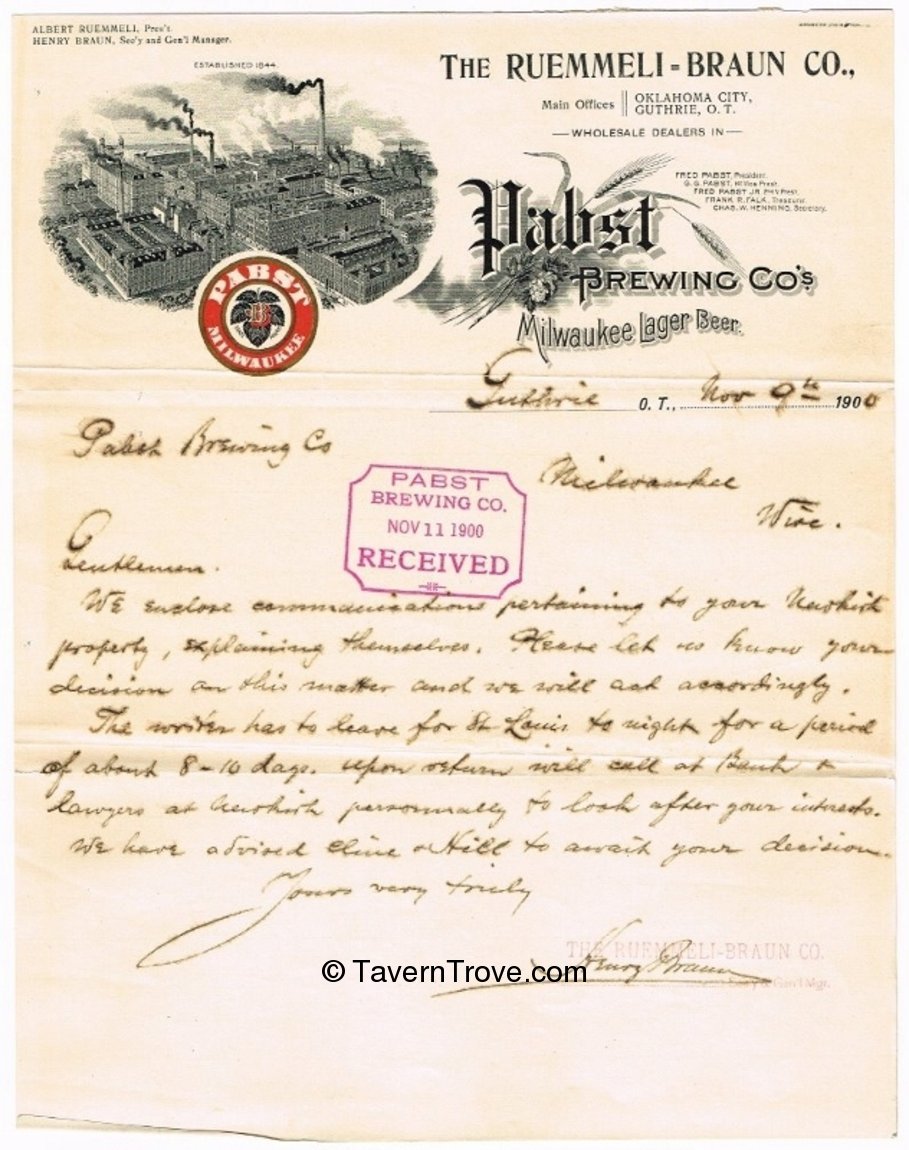 ALBERT RUEMMELI, Pres't.
HENRY BRAUN, Sec'y and Gen'l Manager.
ESTABLISHED 1844.
THE RUEMMELI-BRAUN CO.,
Main Offices OKLAHOMA CITY,
GUTHRIE, O. T.
WHOLESALE DEALERS IN
Pabst
BREWING CO'S
Milwaukee Lager Beer.
FRED PABST, President.
G. G. PABST, 1st Vice Prest.
FRED PABST JR. 2nd V. Prest.
FRANK R. FALK, Treasurer.
CHAS. W. HENNING, Secretary.
PABST
MILWAUKEE
B
Guthrie O. T., Nov 9th 1900
Pabst Brewing Co
Milwaukee
Wisc.
PABST
BREWING CO.
NOV 11 1900
RECEIVED
Gentlemen.
We enclose communications pertaining to your Newkirk
property, explaining themselves. Please let us know your
decision on this matter and we will act accordingly.
The writer has to leave for St. Louis to night for a period
of about 8-10 days. upon return will call at Bank &
lawyers at Newkirk personally to look after your interests.
We have advised Cline & Hill to await your decision.
Yours very truly
THE RUEMMELI-BRAUN CO.
Henry Braun
Sec'y & Gen'l Mgr.
© TavernTrove.com